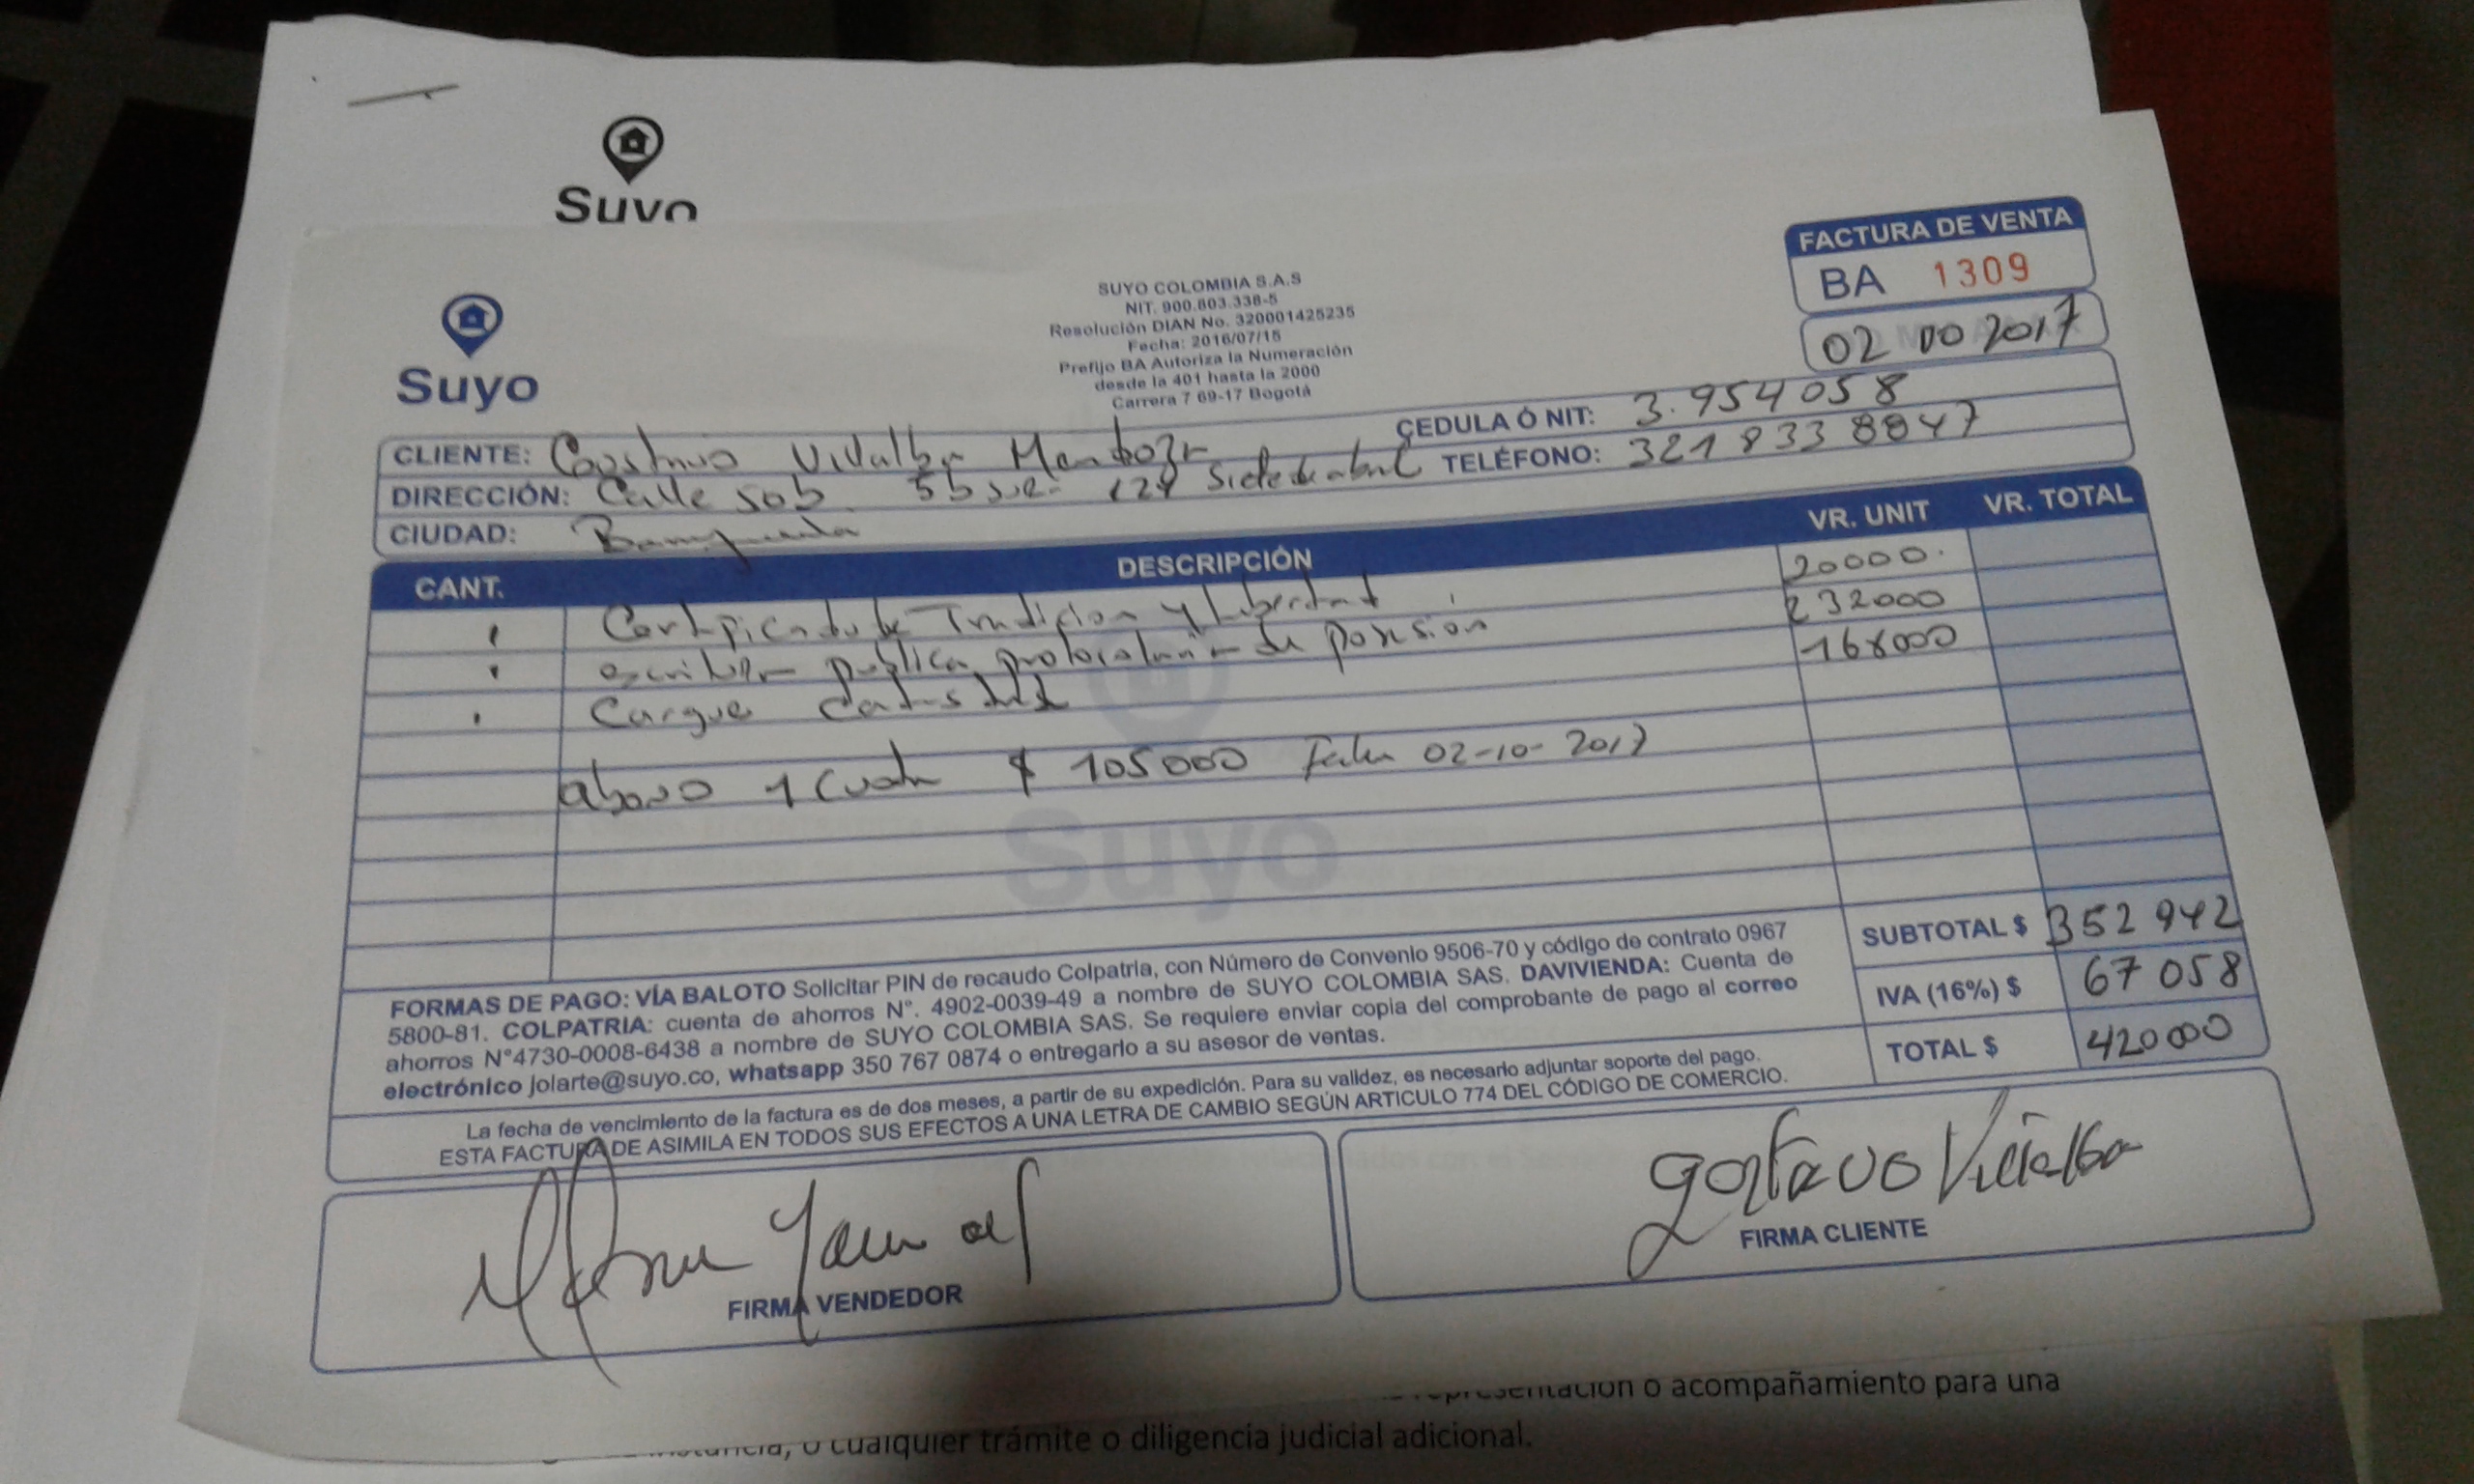 Suyo
Suyo
SUYO COLOMBIA S.A.S
NIT. 900.803.338-5
Resolución DIAN No. 320001425235
Fecha: 2016/07/15
Prefijo BA Autoriza la Numeración
desde la 401 hasta la 2000
Carrera 7 69-17 Bogotá
FACTURA DE VENTA
BA 1309
02 10 2017
CLIENTE: Gustavo Villalba Mendoza
CEDULA Ó NIT: 3.954058
DIRECCIÓN: Calle 50b 5b sur 124 Siete de abril
TELÉFONO: 321 833 8847
CIUDAD: Barranquilla
CANT. DESCRIPCIÓN VR. UNIT VR. TOTAL
1 Certificado de Tradicion y Libertad 20000
1 escritura publica protocolaria de posesion 232000
1 Cargue Catastral 168000
abono 1 cuota $ 105000 Fecha 02-10-2017
Suyo
SUBTOTAL $ 352 942
IVA (16%) $ 67 058
TOTAL $ 420000
FORMAS DE PAGO: VÍA BALOTO Solicitar PIN de recaudo Colpatria, con Número de Convenio 9506-70 y código de contrato 0967
5800-81. COLPATRIA: cuenta de ahorros N°. 4902-0039-49 a nombre de SUYO COLOMBIA SAS. DAVIVIENDA: Cuenta de
ahorros N°4730-0008-6438 a nombre de SUYO COLOMBIA SAS. Se requiere enviar copia del comprobante de pago al correo
electrónico jolarte@suyo.co, whatsapp 350 767 0874 o entregarlo a su asesor de ventas.
La fecha de vencimiento de la factura es de dos meses, a partir de su expedición. Para su validez, es necesario adjuntar soporte del pago.
ESTA FACTURA DE ASIMILA EN TODOS SUS EFECTOS A UNA LETRA DE CAMBIO SEGÚN ARTICULO 774 DEL CÓDIGO DE COMERCIO.
FIRMA VENDEDOR
gostavo Villalba
FIRMA CLIENTE
representación o acompañamiento para una
instancia, o cualquier trámite o diligencia judicial adicional.